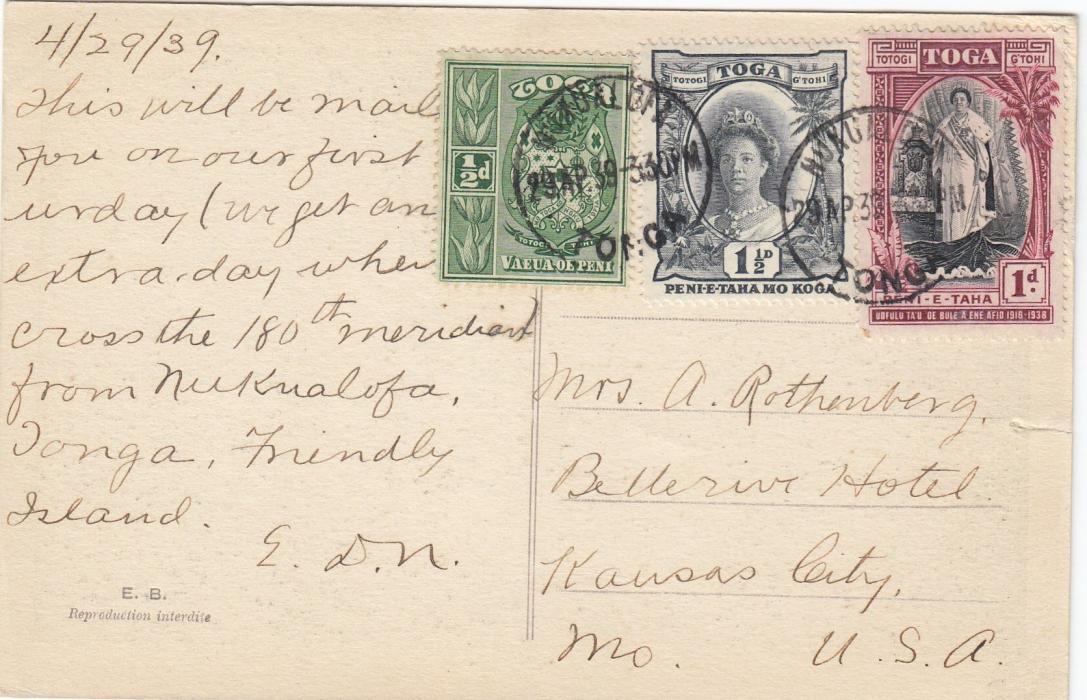 4/29/39.
This will be mail
you on our first
urday (we get an
extra day when
cross the 180th meridian)
from Nukualofa,
Tonga, Friendly
Island.
E. D. N.
E. B.
Reproduction interdite
TOGA
½d
TOTOGI TOHI
VAEUA·OE PENI
TOTOGI TOGA G'TOHI
1½D
PENI-E-TAHA MO KOGA
TOTOGI TOGA G'TOHI
PENI-E-TAHA 1d.
UOFULU TA'U OE BULE A ENE AFIO 1918-1938
29 AP 39-330PM
TONGA
29 AP 39 PM
TONGA
Mrs. A. Rothenberg,
Bellerive Hotel
Kansas City,
Mo. U. S. A.